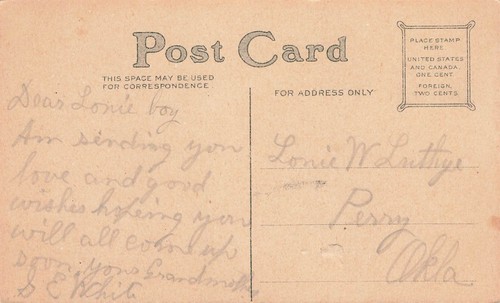 Post Card
THIS SPACE MAY BE USED
FOR CORRESPONDENCE
FOR ADDRESS ONLY
PLACE STAMP
HERE
UNITED STATES
AND CANADA
ONE CENT
FOREIGN,
TWO CENTS
Dear Lonie boy
Am sending you
love and good
wishes hopeing you
will all come up
soon yours Grandmother
S E White
Lonie W Luthye
Perry
Okla